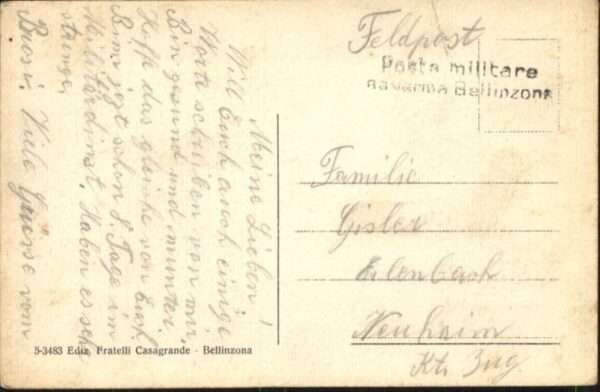 Meine Lieben!
Will Euch auch einige
Worte schreiben von mir.
Bin gesund und munter.
Hoffe das gleiche von Euch.
Bims jezt schon 8. Tage im
Militärdinst. Haben es sch
strenge,
Viele Grüsse vom
Feldpost
Posta militare
Bellinzona
Familie
Gisler
Neuheim
Kt. Zug.
5-3483 Ediz. Fratelli Casagrande - Bellinzona